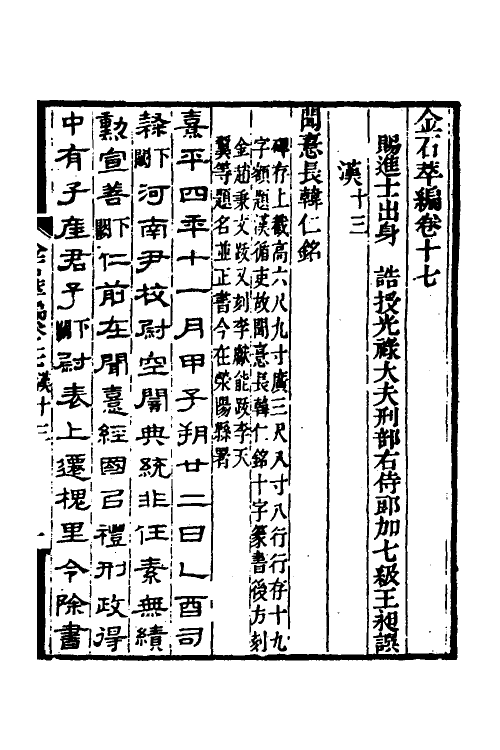 金石萃編卷十七
賜進士出身　誥授光祿大夫刑部右侍郎加七級王昶譔
漢十三
聞憙長韓仁銘
碑存上截高六尺九寸廣三尺八寸八行行存十九
字額題漢循吏故聞憙長韓仁銘十字篆書後方刻
金趙秉文跋又刻李獻能跋李天
翼等題名並正書今在滎陽縣署
熹平四年十一月甲子朔廿二日乙酉司
隸下闕河南尹校尉空闇典統非任素無績
勳宣善下闕仁前在聞憙經國以禮刑政得
中有子產君子下闕尉表上遷槐里令除書
金石萃編卷十七漢十三
一